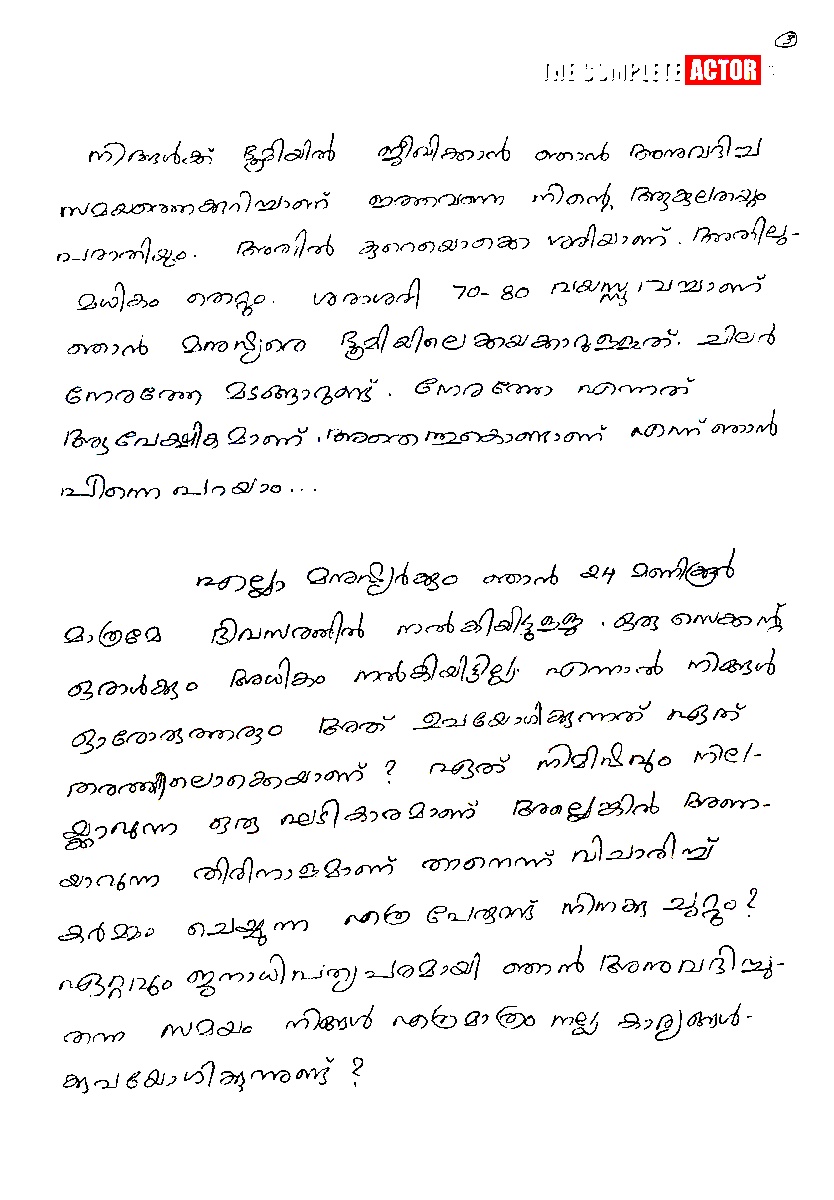 3
THE COMPLETE ACTOR
നിങ്ങൾക്ക് ഭൂമിയിൽ ജീവിക്കാൻ ഞാൻ അനുവദിച്ച
സമയത്തെക്കുറിച്ചാണ് ഇത്തവണ നിന്റെ ആകുലതയും
പരാതിയും. അതിൽ കുറെയൊക്കെ ശരിയാണ്. അതിലു-
മധികം തെറ്റും. ശരാശരി 70-80 വയസ്സു വച്ചാണ്
ഞാൻ മനുഷ്യരെ ഭൂമിയിലെക്കയക്കാറുള്ളത്. ചിലർ
നേരത്തേ മടങ്ങാറുണ്ട്. നേരത്തേ എന്നത്
ആപേക്ഷികമാണ്. അതെന്തുകൊണ്ടാണ് എന്ന് ഞാൻ
പിന്നെ പറയാം...
എല്ലാ മനുഷ്യർക്കും ഞാൻ 24 മണിക്കൂർ
മാത്രമേ ദിവസത്തിൽ നൽകിയിട്ടുള്ളു. ഒരു സെക്കന്റ്
ഒരാൾക്കും അധികം നൽകിയിട്ടില്ല. എന്നാൽ നിങ്ങൾ
ഓരോരുത്തരും അത് ഉപയോഗിക്കുന്നത് ഏത്
തരത്തിലൊക്കെയാണ്? ഏത് നിമിഷവും നില-
യ്ക്കാവുന്ന ഒരു ഘടികാരമാണ് അല്ലെങ്കിൽ അണ-
യാവുന്ന തിരിനാളമാണ് താനെന്ന് വിചാരിച്ച്
കർമ്മം ചെയ്യുന്ന എത്ര പേരുണ്ട് നിനക്കു ചുറ്റും?
ഏറ്റവും ജനാധിപത്യപരമായി ഞാൻ അനുവദിച്ചു-
തന്ന സമയം നിങ്ങൾ എത്രമാത്രം നല്ല കാര്യങ്ങൾ-
ക്കുപയോഗിക്കുന്നുണ്ട്?